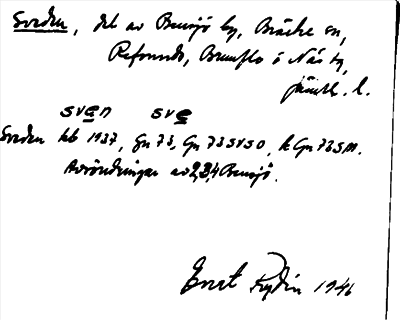 Sveden, del av Bensjö by, Bräcke sn,
Refsunds, Brunflo o Näs tg,
jämtl. l.
sven sve
Sveden kb 1937, Gn 73, Gn 73 SVSO, k Gn 73 SM.
Avsöndringar av 2,3,4 Bensjö.
Ernst Rydin 1946